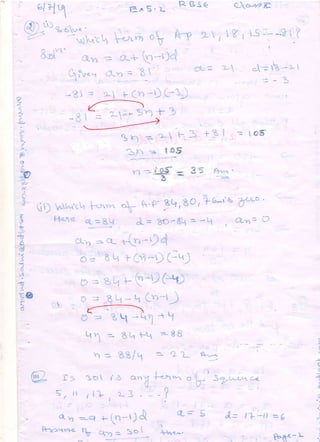 6/7/19 Ex 5.2 RBSE Class X
(i) Solve.
Which term of A.P 21, 18, 15 - - - -81?
Solⁿ. an = a+(n-1)d
Given an = 81 a = 21 d = 18-21
= -3
-81 = 21 +(n-1)(-3)
-81 = 21 - 3n + 3
3n = 21 + 3 + 81 = 105
3n = 105
n = 105/3 = 35 Ans.
(ii) Which term of A.P 84, 80, 76 is zero.
Here a = 84 d = 80-84 = -4, an = 0
an = a +(n-1)d
0 = 84 +(n-1)(-4)
0 = 84 + (n-1)(-4)
0 = 84 - 4(n-1)
0 = 84 - 4n + 4
4n = 84+4 = 88
n = 88/4 = 22 Ans
(iii) Is 301 is any term of sequence
5, 11, 17, 23 - - - ?
an = a +(n-1)d a = 5 d = 17-11 = 6
Assume if an = 301 then.
Page-2